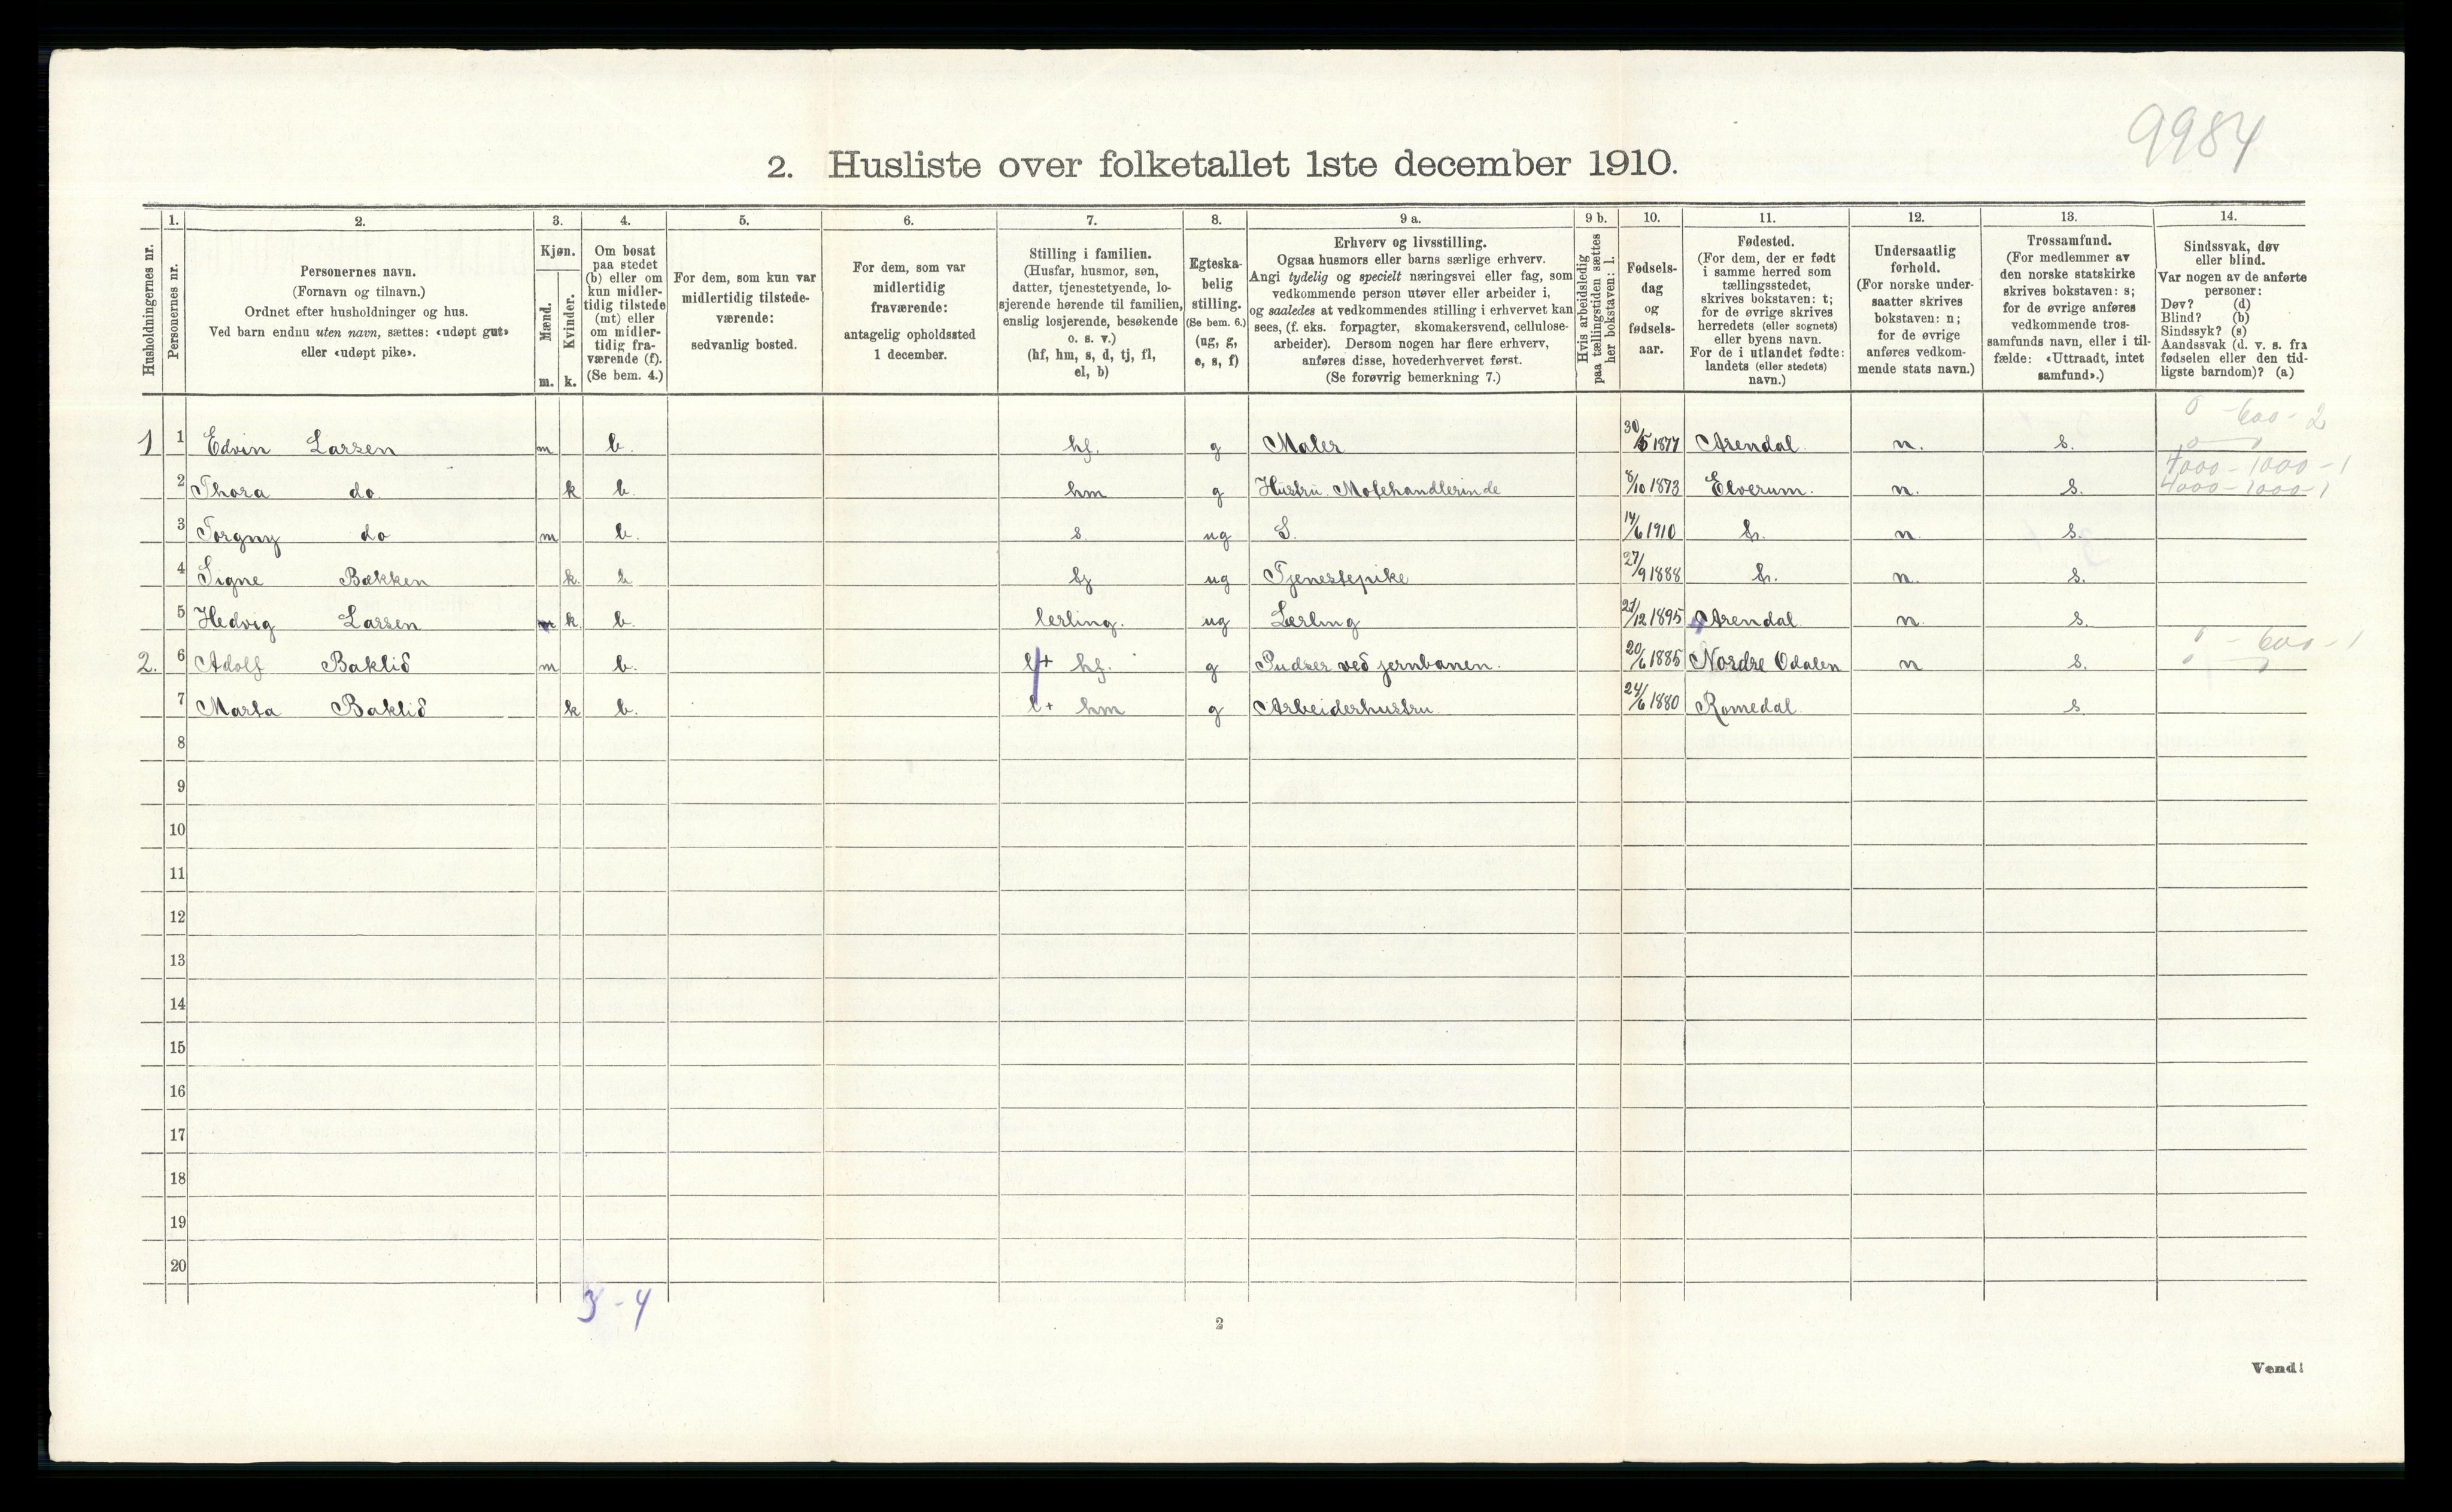 9984
2. Husliste over folketallet 1ste december 1910.
Husholdningernes nr.
1.
Personernes nr.
2.
Personernes navn.
(Fornavn og tilnavn.)
Ordnet efter husholdninger og hus.
Ved barn endnu uten navn, sættes: «udøpt gut»
eller «udøpt pike».
3.
Kjøn.
Mænd.
Kvinder.
m. k.
4.
Om bosat
paa stedet
(b) eller om
kun midler-
tidig tilstede
(mt) eller
om midler-
tidig fra-
værende (f).
(Se bem. 4.)
5.
For dem, som kun var
midlertidig tilstede-
værende:
sedvanlig bosted.
6.
For dem, som var
midlertidig
fraværende:
antagelig opholdssted
1 december.
7.
Stilling i familien.
(Husfar, husmor, søn,
datter, tjenestetyende, lo-
sjerende hørende til familien,
enslig losjerende, besøkende
o. s. v.)
(hf, hm, s, d, tj, fl,
el, b)
8.
Egteska-
belig
stilling.
(Se bem. 6.)
(ug, g,
e, s, f)
9 a.
Erhverv og livsstilling.
Ogsaa husmors eller barns særlige erhverv.
Angi tydelig og specielt næringsvei eller fag, som
vedkommende person utøver eller arbeider i,
og saaledes at vedkommendes stilling i erhvervet kan
sees, (f. eks. forpagter, skomakersvend, cellulose-
arbeider). Dersom nogen har flere erhverv,
anføres disse, hovederhvervet først.
(Se forøvrig bemerkning 7.)
9 b.
Hvis arbeidsledig
paa tællingstiden sættes
her bokstaven: l.
10.
Fødsels-
dag
og
fødsels-
aar.
11.
Fødested.
(For dem, der er født
i samme herred som
tællingsstedet,
skrives bokstaven: t;
for de øvrige skrives
herredets (eller sognets)
eller byens navn.
For de i utlandet fødte:
landets (eller stedets)
navn.)
12.
Undersaatlig
forhold.
(For norske under-
saatter skrives
bokstaven: n;
for de øvrige
anføres vedkom-
mende stats navn.)
13.
Trossamfund.
(For medlemmer av
den norske statskirke
skrives bokstaven: s;
for de øvrige anføres
vedkommende tros-
samfunds navn, eller i til-
fælde: «Uttraadt, intet
samfund».)
14.
Sindssvak, døv
eller blind.
Var nogen av de anførte
personer:
Døv? (d)
Blind? (b)
Sindssyk? (s)
Aandssvak (d. v. s. fra
fødselen eller den tid-
ligste barndom)? (a)
0 - 600 - 2
1 1 Edvin Larsen m b. hf. g Maler 30/5 1877 Arendal n. s.
4000 - 1000 - 1
2 Thora do k b. hm g Hustru. Motehandlerinde 8/10 1873 Elverum. n. s. 4000 - 1000 - 1
3 Torgny do m b. s. ug S. 14/6 1910 n s.
4 Signe Bækken k. b tj ug Tjenestepike 27/9 1888 n. s.
5 Hedvig Larsen k. b. lerling. ug Lærling 21/12 1895 Arendal n. s.
2. 6 Adolf Baklid m b. hf. g Pudser ved jernbanen. 20/6 1885 Nordre Odalen n s. 0 - 600 - 1
7 Marta Baklid k b. hm g Arbeiderhustru. 24/6 1880 Romedal. s.
8
9
10
11
12
13
14
15
16
17
18
19
20
3 - 4
2
Vend!